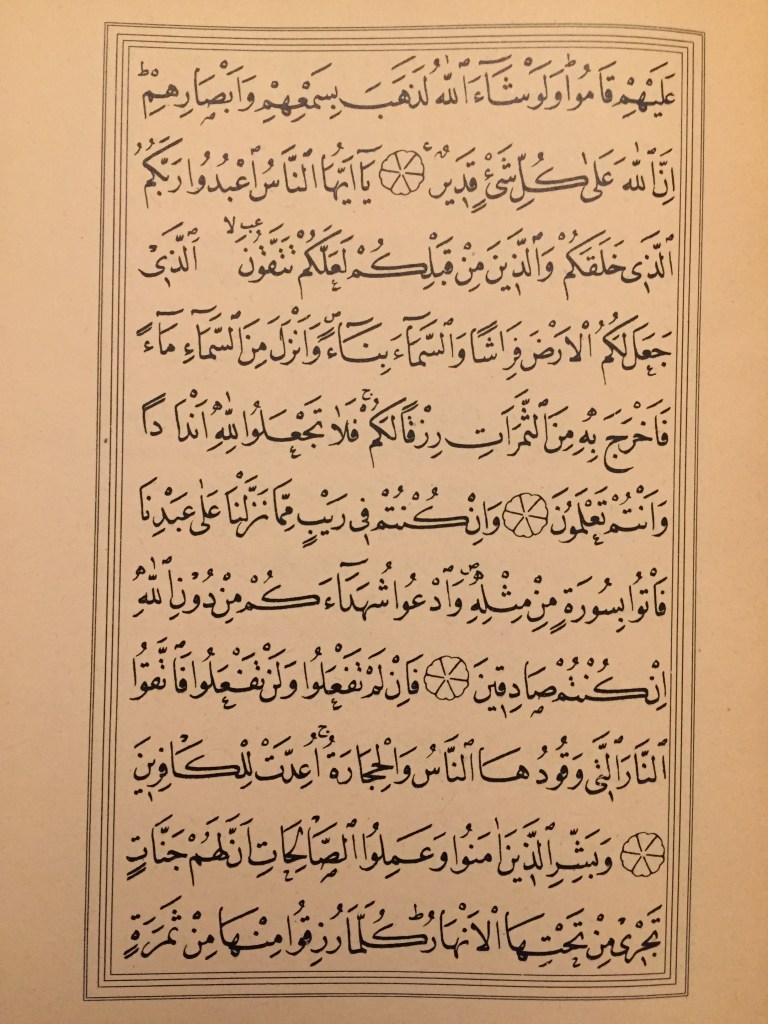 عَلَيْهِمْ قَامُواۜ وَلَوْ شَآءَ اللّٰهُ لَذَهَبَ بِسَمْعِهِمْ وَاَبْصَارِهِمْۜ
اِنَّ اللّٰهَ عَلٰى كُلِّ شَىْءٍ قَدٖيرٌ ۝ يَآ اَيُّهَا النَّاسُ اعْبُدُوا رَبَّكُمُ
الَّذٖى خَلَقَكُمْ وَالَّذٖينَ مِنْ قَبْلِكُمْ لَعَلَّكُمْ تَتَّقُونَ اَلَّذٖى
جَعَلَ لَكُمُ الْاَرْضَ فِرَاشًا وَالسَّمَآءَ بِنَآءً وَاَنْزَلَ مِنَ السَّمَآءِ مَآءً
فَاَخْرَجَ بِهٖ مِنَ الثَّمَرَاتِ رِزْقًا لَكُمْۚ فَلَا تَجْعَلُوا لِلّٰهِ اَنْدَادًا
وَاَنْتُمْ تَعْلَمُونَ ۝ وَاِنْ كُنْتُمْ فٖى رَيْبٍ مِمَّا نَزَّلْنَا عَلٰى عَبْدِنَا
فَاْتُوا بِسُورَةٍ مِنْ مِثْلِهٖ وَادْعُوا شُهَدَآءَكُمْ مِنْ دُونِ اللّٰهِ
اِنْ كُنْتُمْ صَادِقٖينَ ۝ فَاِنْ لَمْ تَفْعَلُوا وَلَنْ تَفْعَلُوا فَاتَّقُوا
النَّارَ الَّتٖى وَقُودُهَا النَّاسُ وَالْحِجَارَةُۚ اُعِدَّتْ لِلْكَافِرٖينَ
۝ وَبَشِّرِ الَّذٖينَ اٰمَنُوا وَعَمِلُوا الصَّالِحَاتِ اَنَّ لَهُمْ جَنَّاتٍ
تَجْرٖى مِنْ تَحْتِهَا الْاَنْهَارُۜ كُلَّمَا رُزِقُوا مِنْهَا مِنْ ثَمَرَةٍ